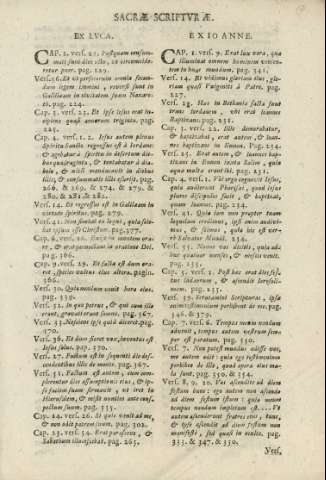 SACRÆ SCRIPTURÆ.
EX LUCA.
CAP. 2. vers. 21. Postquam consum-
mati sunt dies octo, ut circumcide-
retur puer. pag. 129.
Vers. 39. Et ut perfecerunt omnia secun-
dum legem Domini, reversi sunt in
Galilæam in civitatem suam Nazare-
th. pag. 224.
Cap. 3. vers. 23. Et ipse Iesus erat in-
cipiens quasi annorum triginta. pag.
225.
Cap. 4. vers. 1. 2. Iesus autem plenus
Spiritu Sancto regressus est à Iordane:
& agebatur à Spiritu in desertum die-
bus quadraginta, & tentabatur à dia-
bolo, & nihil manducavit in diebus
illis, & consummatis illis esuriit. pag.
266. & 269. & 274. & 279. &
280. & 281. & 282.
Vers. 14. Et regressus est in Galilæam in
virtute Spiritus. pag. 279.
quia scie-
bant ipsum esse Christum. pag. 277.
Cap. 6. vers. 12. Exiit in montem ora-
re, & erat pernoctans in oratione Dei.
pag. 366.
Cap. 9. vers. 29. Et facta est dum ora-
ret, species vultus eius altera. pag.
366.
Vers. 50. Quomodo venit hora eius.
pag. 359.
Vers. 32. & qui cum illo
erant, gravati erant somno. pag. 367.
Vers. 33. Nesciens quid diceret. pag.
370.
Vers. 36. Et dum fieret vox, inventus est
Iesus solus. pag. 370.
Vers. 37. Factum est in sequenti die des-
cendentibus illis de monte. pag. 367.
Vers. 51. Factum est autem, dum com-
plerentur dies assumptionis eius, & ip-
se faciem suam firmavit, ut iret in Ie-
rusalem, & misit nuntios ante cons-
pectum suum. pag. 355.
Cap. 14. vers. 26. Si quis venit ad me,
& non odit patrem suum. pag. 302.
Cap. 23. vers. 54. Erat parasceve, &
Sabbatum illucescebat. pag. 265.
EX IOANNE.
CAP. 1. vers. 9. Erat lux vera, quæ
illuminat omnem hominem venien-
tem in hunc mundum. pag. 341.
Vers. 14. Et vidimus gloriam eius, glo-
riam quasi Unigeniti à Patre. pag.
227.
Vers. 28. Hæc in Bethania facta sunt
trans Iordanem, ubi erat Ioannes
Baptizans. pag. 231.
Cap. 3. vers. 22. Illic demorabatur,
& baptizabat, erat autem & Ioan-
nes baptizans in Ennon. Pag. 254.
Vers. 23. Erat autem, & Ioannes bap-
tizans in Ennon iuxta Salim, quia
aquæ multæ erant ibi. pag. 231.
Cap. 4. vers. 1. Ut ergo cognovit Iesus,
quia audierunt Pharisæi, quod Iesus
plures discipulos facit, & baptizat,
quam Ioannes. pag. 254.
Vers. 42. Quia iam non propter tuam
loquelam credimus, ipsi enim audivi-
mus, & scimus, quia hic est ve-
rè Salvator Mundi. pag. 234.
Vers. 35. Nonne vos dicitis, quia ad-
huc quatuor menses, & messis venit.
pag. 235.
Cap. 5. vers. 1. Post hæc erat dies fes-
tus Iudæorum, & ascendit Ierosoly-
mam. pag. 235.
Vers. 39. Scrutamini Scripturas, ipsæ
enim testimonium perhibent de me. pag.
346. & 379.
Cap. 7. vers. 6. Tempus meum nondum
advenit, tempus autem vestrum sem-
per est paratum. pag. 350.
Vers. 7. Non potest mundus odisse vos,
me autem odit: quia ego testimonium
perhibeo de illo, quod opera eius ma-
la sunt. pag. 350. & 354.
Vers. 8. 9. 10. Vos ascendite ad diem
festum hunc: ego autem non ascendo
ad diem festum istum: quia meum
tempus nondum impletum est... Ut
autem ascenderunt fratres eius, tunc,
& ipse ascendit ad diem festum non
manifestè, sed quasi in occulto. pag.
333. & 347. & 350.
Vers.